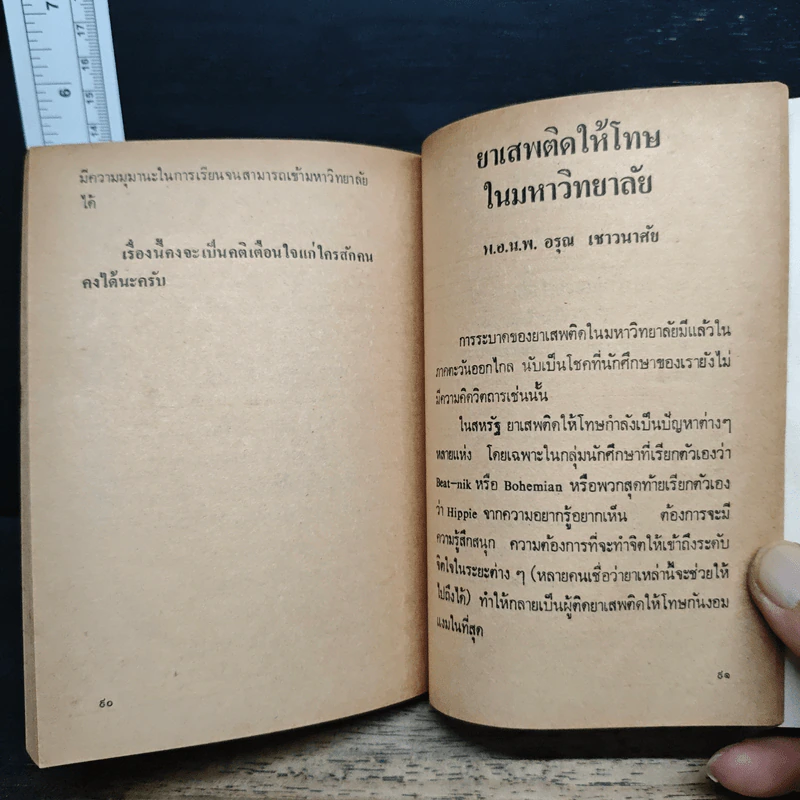 7
6
17
16
15
14
มีความมุมานะในการเรียนจนสามารถเข้ามหาวิทยาลัย
ได้
เรื่องนี้คงจะเป็นคติเตือนใจแก่ใครสักคน
คงได้นะครับ
๙๐
ยาเสพติดให้โทษ
ในมหาวิทยาลัย
พ.อ.น.พ. อรุณ เชาวนาศัย
การระบาดของยาเสพติดในมหาวิทยาลัยมีแล้วใน
ภาคตะวันออกไกล นับเป็นโชคที่นักศึกษาของเรายังไม่
มีความคิดวิตถารเช่นนั้น
ในสหรัฐ ยาเสพติดให้โทษกำลังเป็นปัญหาต่างๆ
หลายแห่ง โดยเฉพาะในกลุ่มนักศึกษาที่เรียกตัวเองว่า
Beat-nik หรือ Bohemian หรือพวกสุดท้ายเรียกตัวเอง
ว่า Hippie จากความอยากรู้อยากเห็น ต้องการจะมี
ความรู้สึกสนุก ความต้องการที่จะทำจิตให้เข้าถึงระดับ
จิตใจในระยะต่าง ๆ (หลายคนเชื่อว่ายาเหล่านี้จะช่วยให้
ไปถึงได้) ทำให้กลายเป็นผู้ติดยาเสพติดให้โทษกันงอม
แงมในที่สุด
๙๑